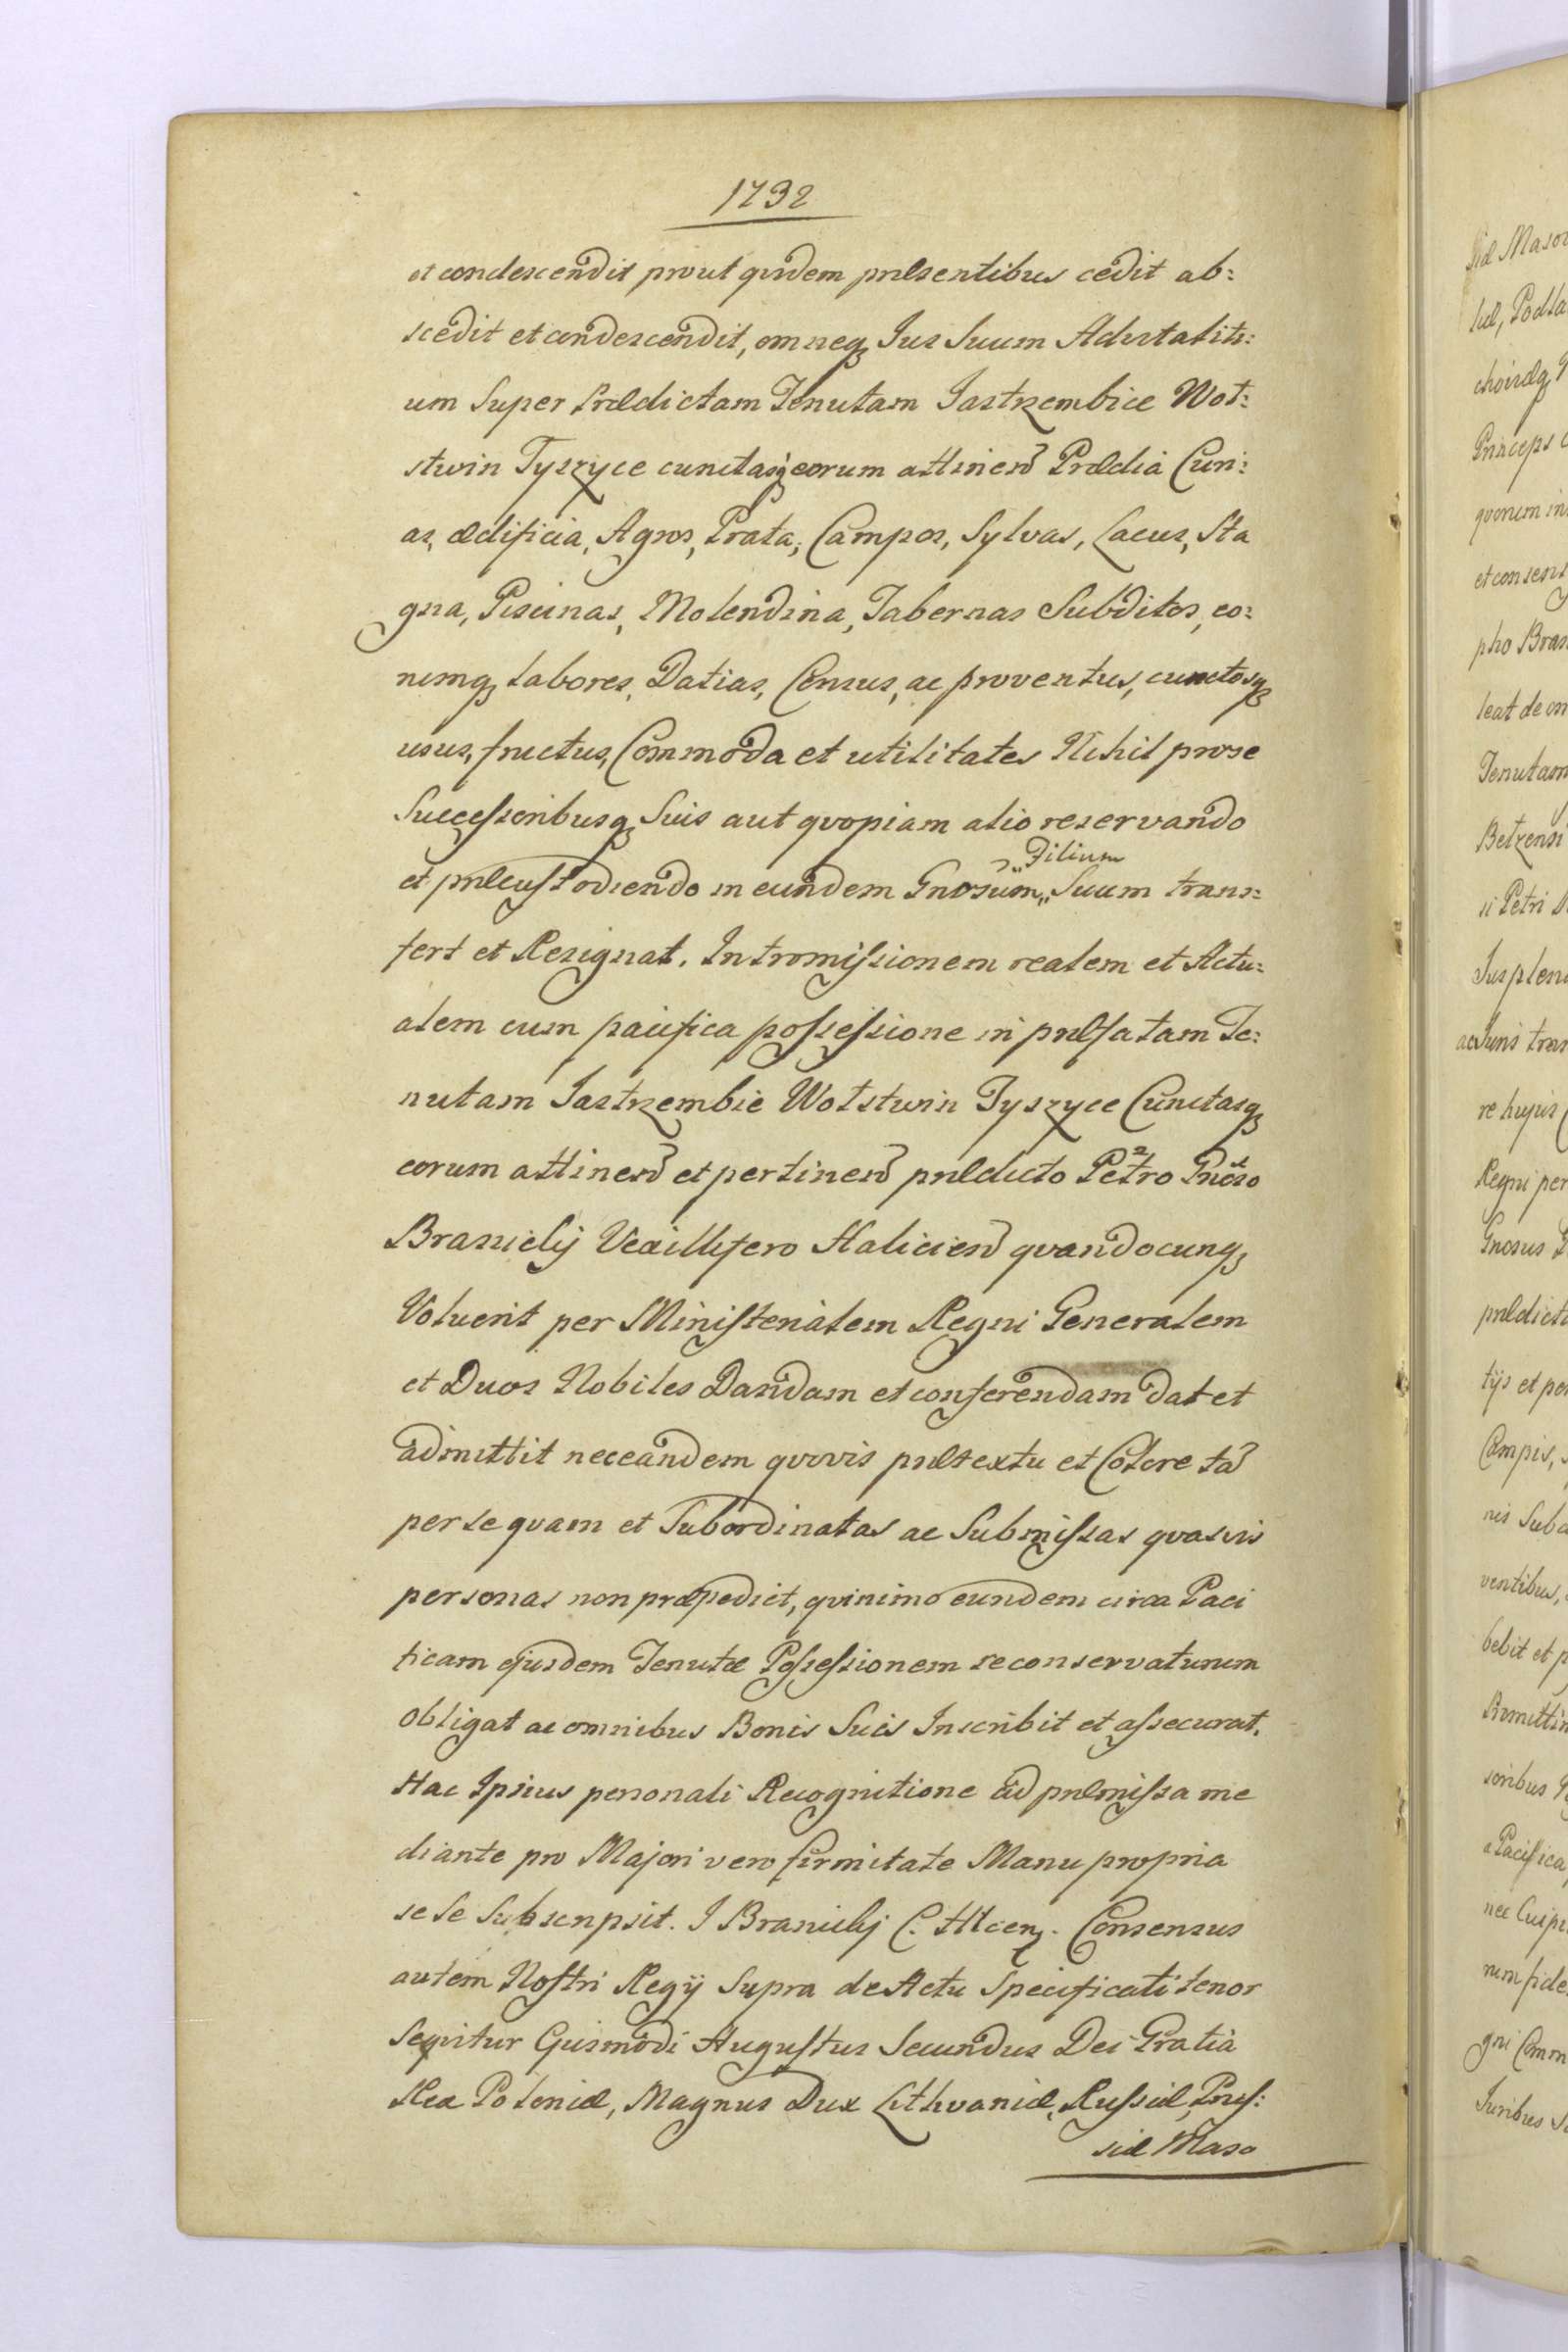 1732
et condescendit prout quidem pnlsentibus cedit ab:
scedit et condescendit, omneq Jus Suum Advitaliti:
um Super Prædictam Tenutam Jastrzembice Wot:
stwin Tyszyce cunctasq eorum attinen Prædia Curi:
as, ædificia, Agros, Prata, Campos, Sylvas, Lacus, Sta
gna, Piscinas, Molendina, Tabernas Subditos, eo:
rumq labores, Datias, Census, ac proventus, cunctosq
usus, fructus, Commoda et utilitates Nihil pro se
Successoribusq Suis aut qvopiam alio reservando
et pnlcustodiendo in eundem Gnosum „Filium„ Suum trans:
fert et Resignat. Intromissionem realem et Actu:
alem cum pacifica possessione in pnlfatam Te:
nutam Jastrzembie Wolstwin Tyszyce Cunctasq
eorum attinen et pertinen pnldicto Petro Gnoso
Branicky Vexillifero Halicien qvandocunq
Voluerit per Ministerialem Regni Generalem
et Duos Nobiles Dandam et conferendam dat et
admittit nec eandem qvovis pnltextu et Colore ta
per se qvam et Subordinatas ac Submissas qvasvis
personas non præpediet, qvinimo eundem circa Paci
ficam ejusdem Tenutæ Possessionem se conservaturum
obligat ac omnibus Bonis Suis Inscribit et assecurat.
Hac Ipsius personali Recognitione ad pnlmissa me
diante pro Majori vero firmitate Manu propria
se se Subscripsit. J Branicky C. Hlcen. Consensus
autem Nostri Regij Supra de Actu Specificati tenor
Seqvitur Ejusmodi Augustus Secundus Dei Gratia
Rex Poloniæ, Magnus Dux Lithvaniæ, Russiæ, Prus:
siæ Maso